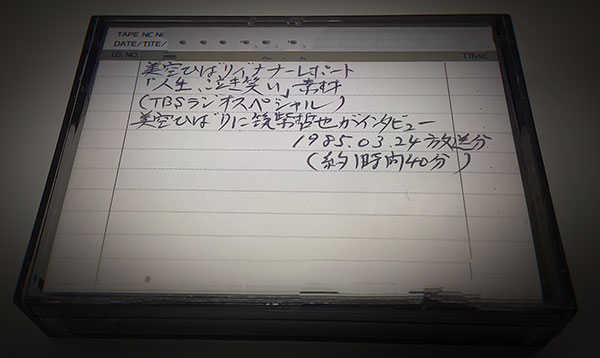 TAPE NO.
DATE/TITE/
I.D. NO.
TIME
美空ひばりイナナーレポート
「人生、泣き笑い」素材
(TBSラジオスペシャル)
美空ひばりに筑紫哲也がインタビュー
1985.03.24放送分
(約1時間40分)